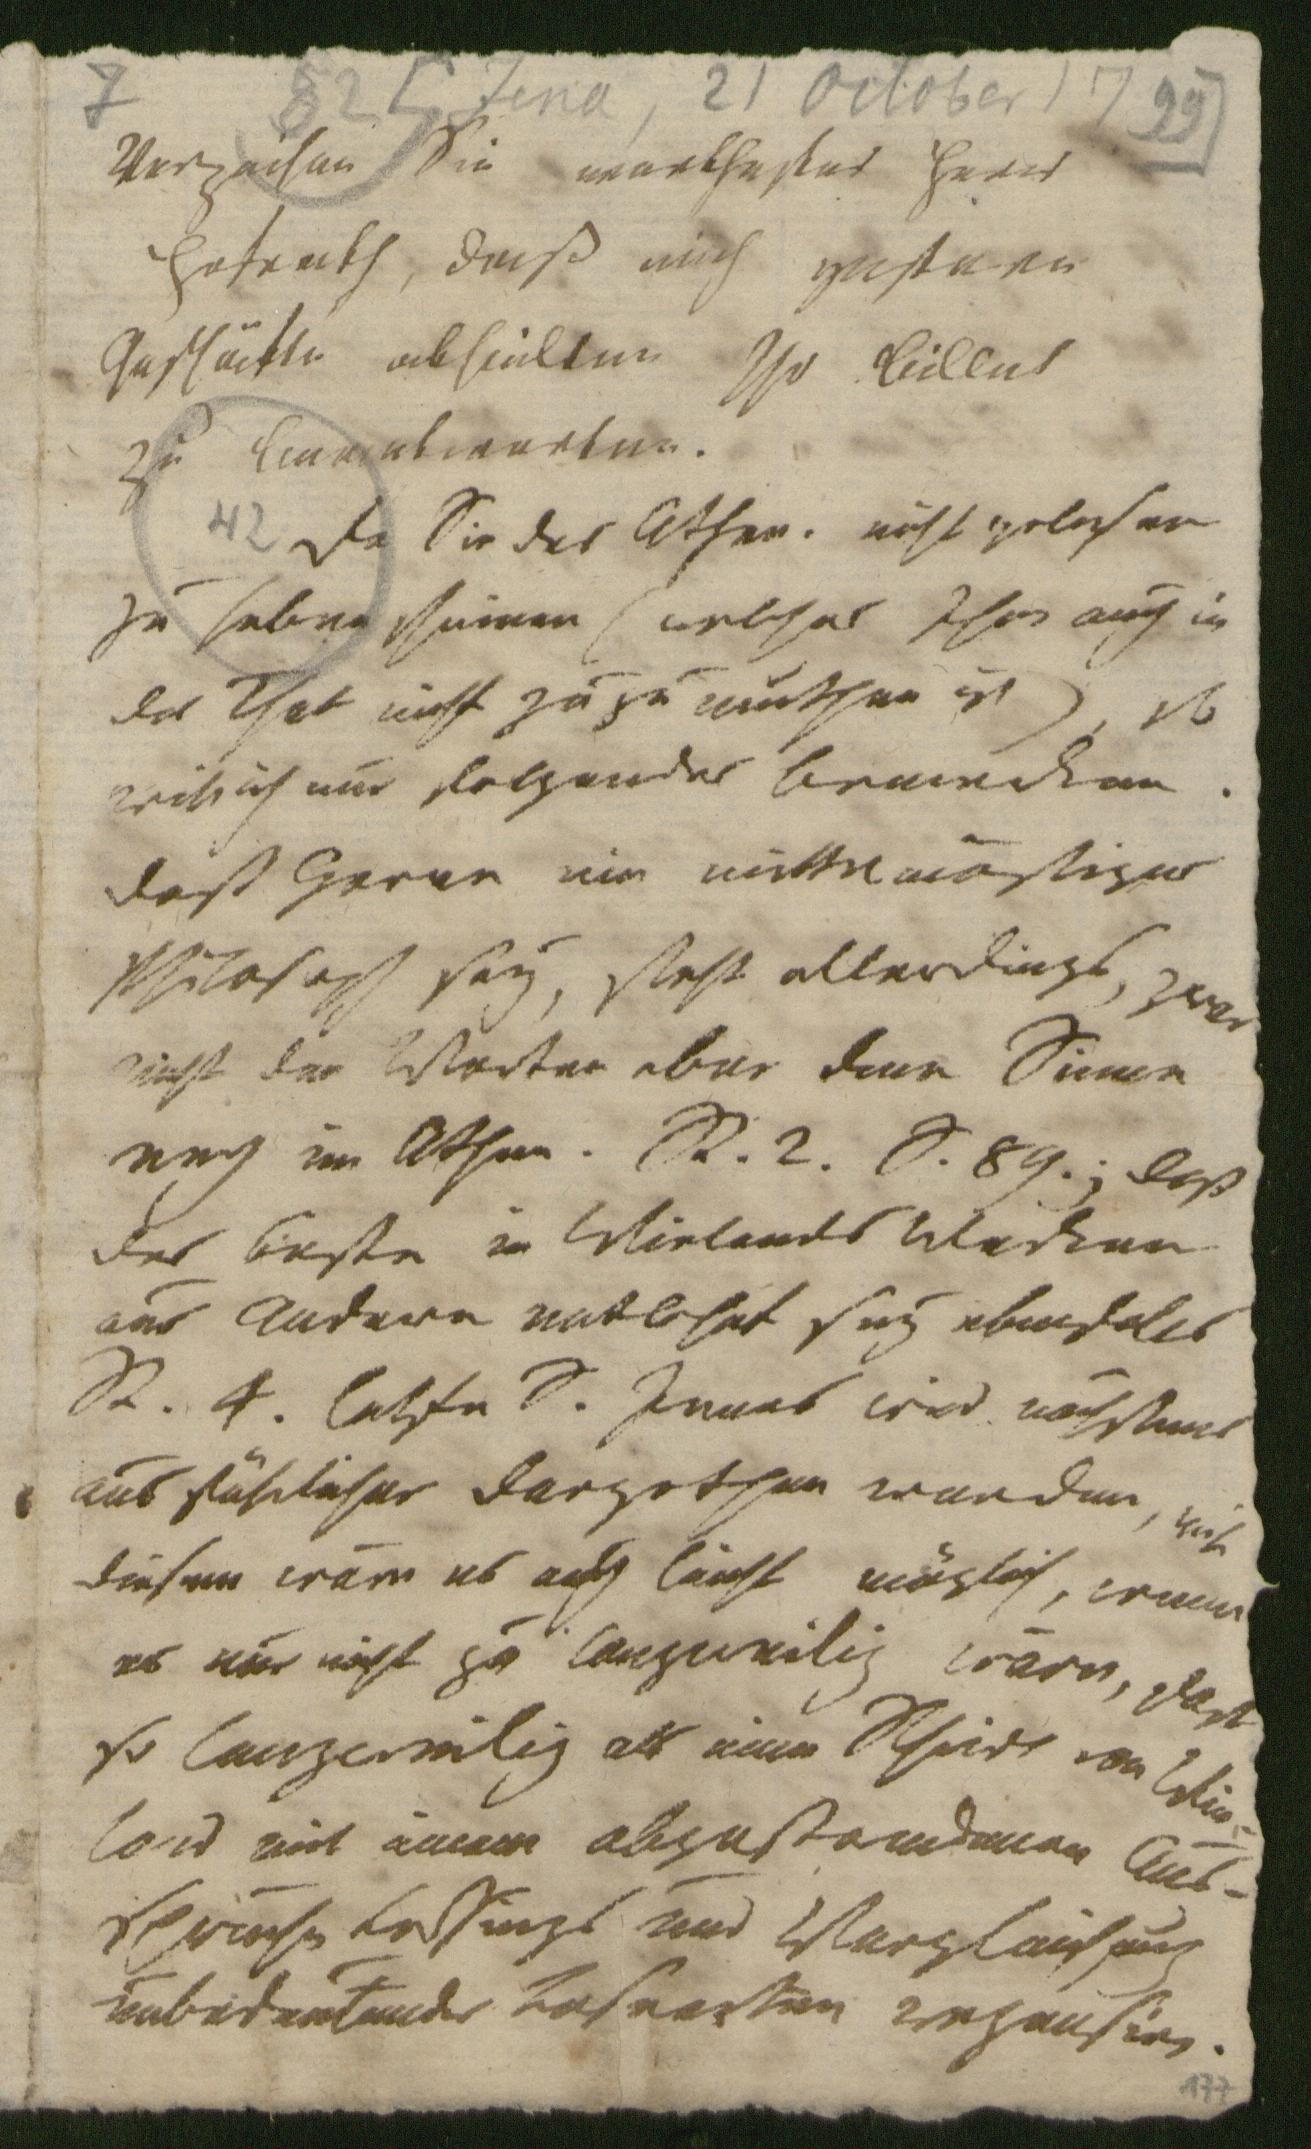 7 82 [Jena, 21 October 1799]
Verzeihen Sie werthester Herr
Hofrath, daß mich gestern
Geschäfte abhielten Ihr Billet
zu beantworten.
42 Da Sie das Athen. nicht gelesen
zu haben scheinen (welches Ihnen auch in
der That nicht zuzumuthen ist), so
will ich nur folgendes bemerken.
daß Garve ein mittelmäßiger
Philosoph sey, steht allerdings, zwar
nicht den Worten aber dem Sinne
nach im Athen. St. 2. S. 89.; daß
das beste in Wielands Werken
aus Andern entlehnt sey ebendaselbst
St. 4. letzte S. Jenes wird nächstens
ausführlicher dargethan werden, mit
diesem wäre es auch leicht möglich, wenn
es nur nicht zu langweilig wäre, fast
so langweilig als eine Schrift von Wie-
land mit einem abgestandenen Aus-
spruche Lessings und Vergleichung
unbedeutender Lesearten
177